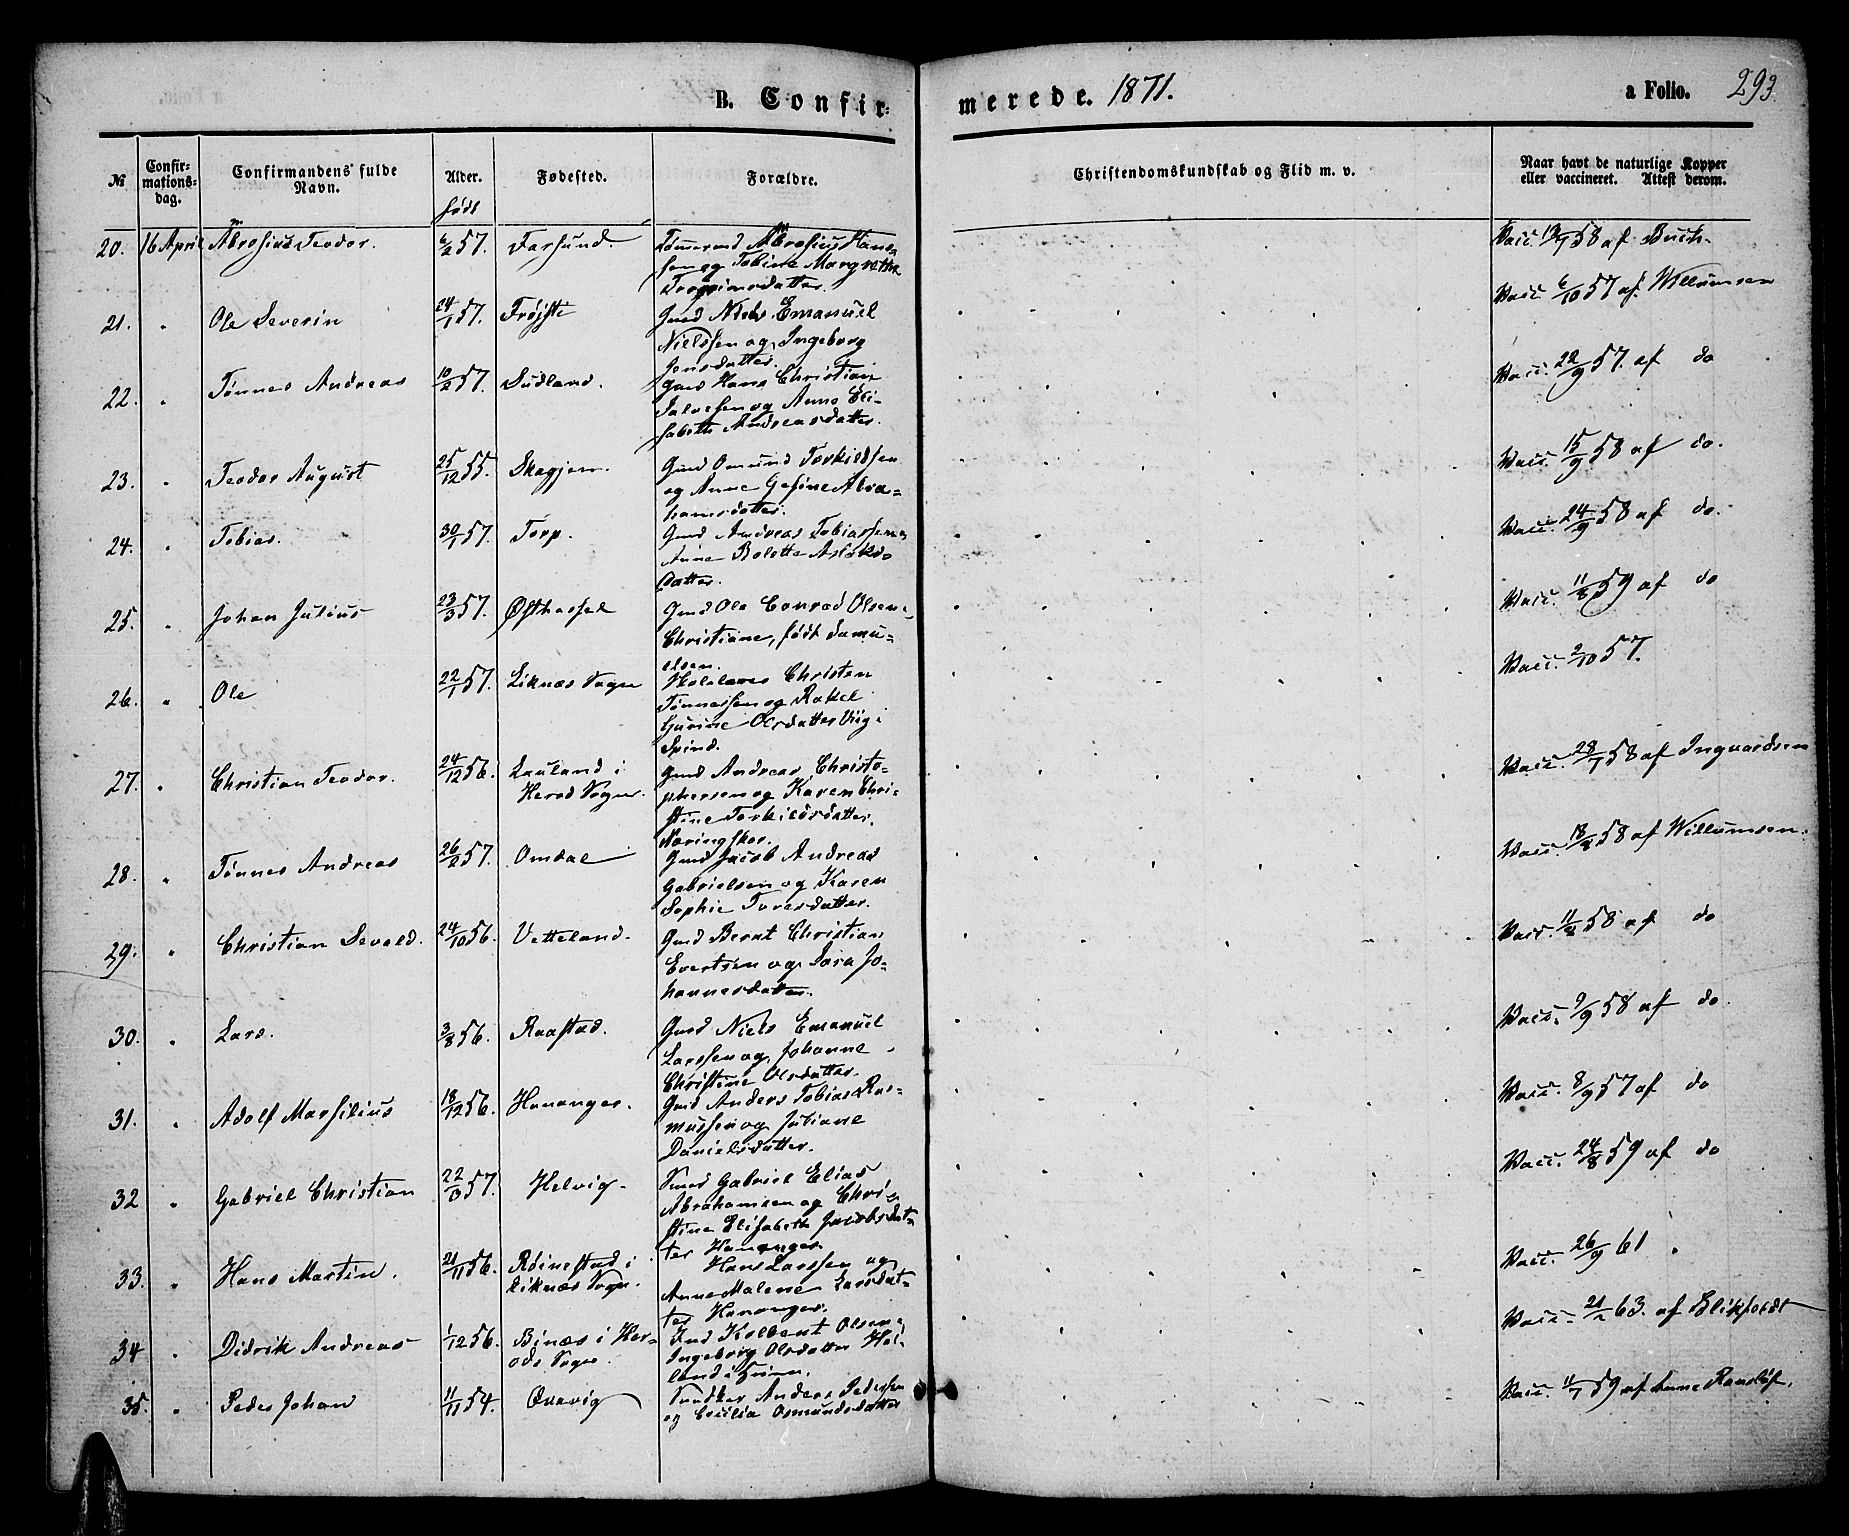 B. Confir-
merede. 1871.
a Folio. 293
№
Confir-
mations-
dag.
Confirmandens fulde
Navn.
Alder.
født
Fødested.
Forældre.
Christendomskundskab og Flid m. v.
Naar havt de naturlige Kopper
eller vaccineret. Attest derom.
20. 16 April Abrosius Teodor. 6/2 57. Farsund. Abrosius Han-
sen og Tobine Margrethe
Vacc. 13/7 58 af Buch.
21. " Ole Severin 24/1 57. Gmd Niels Emanuel
Nielssen og Ingeborg
Jensdatter.
Vacc. 6/10 57 af Willumsen
22. " Tønnes Andreas 10/2 57. Sudland. Gmd Hans Christian
Salvesen og Anne Eli-
sabeth Andreasdatter.
Vacc. 22/9 57. af do
23. " Teodor August 25/12 55. Skeggjem. Gmd Omund Torkildsen
og Anne Gesine Abra-
hamsdatter.
Vacc. 15/9 58 af do.
24. " Tobias. 30/1 57. Torp. Gmd Andreas Tobiassen og
Anne Bolette Aslaks-
datter.
Vacc. 24/9 58 af do.
25. " Johan Julius 23/3 57. Østhassel Gmd Ole Conrad Olsen og
Christiane, født Samu-
elsen.
Vacc. 11/8 59 af do
26. " Ole 22/1 57. Liknæs Sogn Christen
Tønnessen og Rakel
Gurine Olsdatter Viig i
Spind.
Vacc. 2/10 57.
27. " Christian Teodor. 24/12 56. Lauland i
Herad Sogn. Gmd Andreas Christo-
phersen og Karen Chri-
stine Torkildsdatter.
Vacc. 28/7 58 af Ingvardsen
28. " Tønnes Andreas 26/2 57. Omdal Gmd Jacob Andreas
Gabrielsen og Karen
Sophie Toresdatter.
Vacc. 18/8 58 af Willumsen.
29. " Christian Sevald. 24/10 56. Vetteland. Gmd Bernt Christian
Evertsen og Sara Jo-
hannesdatter.
Vacc. 11/8 58 af do
30. " Lars. 3/8 56. Raastad. Gmd Niels Emanuel
Larssen og Johanne
Christine Olsdatter.
Vacc. 9/9 58 af do.
31. " Adolf Marsilius 18/12 56. Hananger. Gmd Anders Tobias Ras-
mussen og Juliane
Danielsdatter.
Vacc. 8/9 57 af do
32 " Gabriel Christian 22/3 57. Helvig. Smed Gabriel Elias
Abrahamsen og Chri-
stine Elisabeth Jacobsdat-
ter Hananger.
Vacc. 24/8 59 af do
33. " Hans Martin. 21/11 56. Røinestad i
Liknæs Sogn. Hans Larssen og
Anne Malene Larsdat-
ter Hananger.
Vacc. 26/9 61.
34 " Didrik Andreas 1/12 56. Binæs i Her-
ads Sogn. Ind Kolbent Olsen og
Ingeborg Olsdatter
Vacc. 21/2 63. af Blikfeldt
35. " Peder Johan 11/11 54. Ørevig Anders Pedersen
og Cecilia Osmundsdatter
Vacc. 11/7 59 af